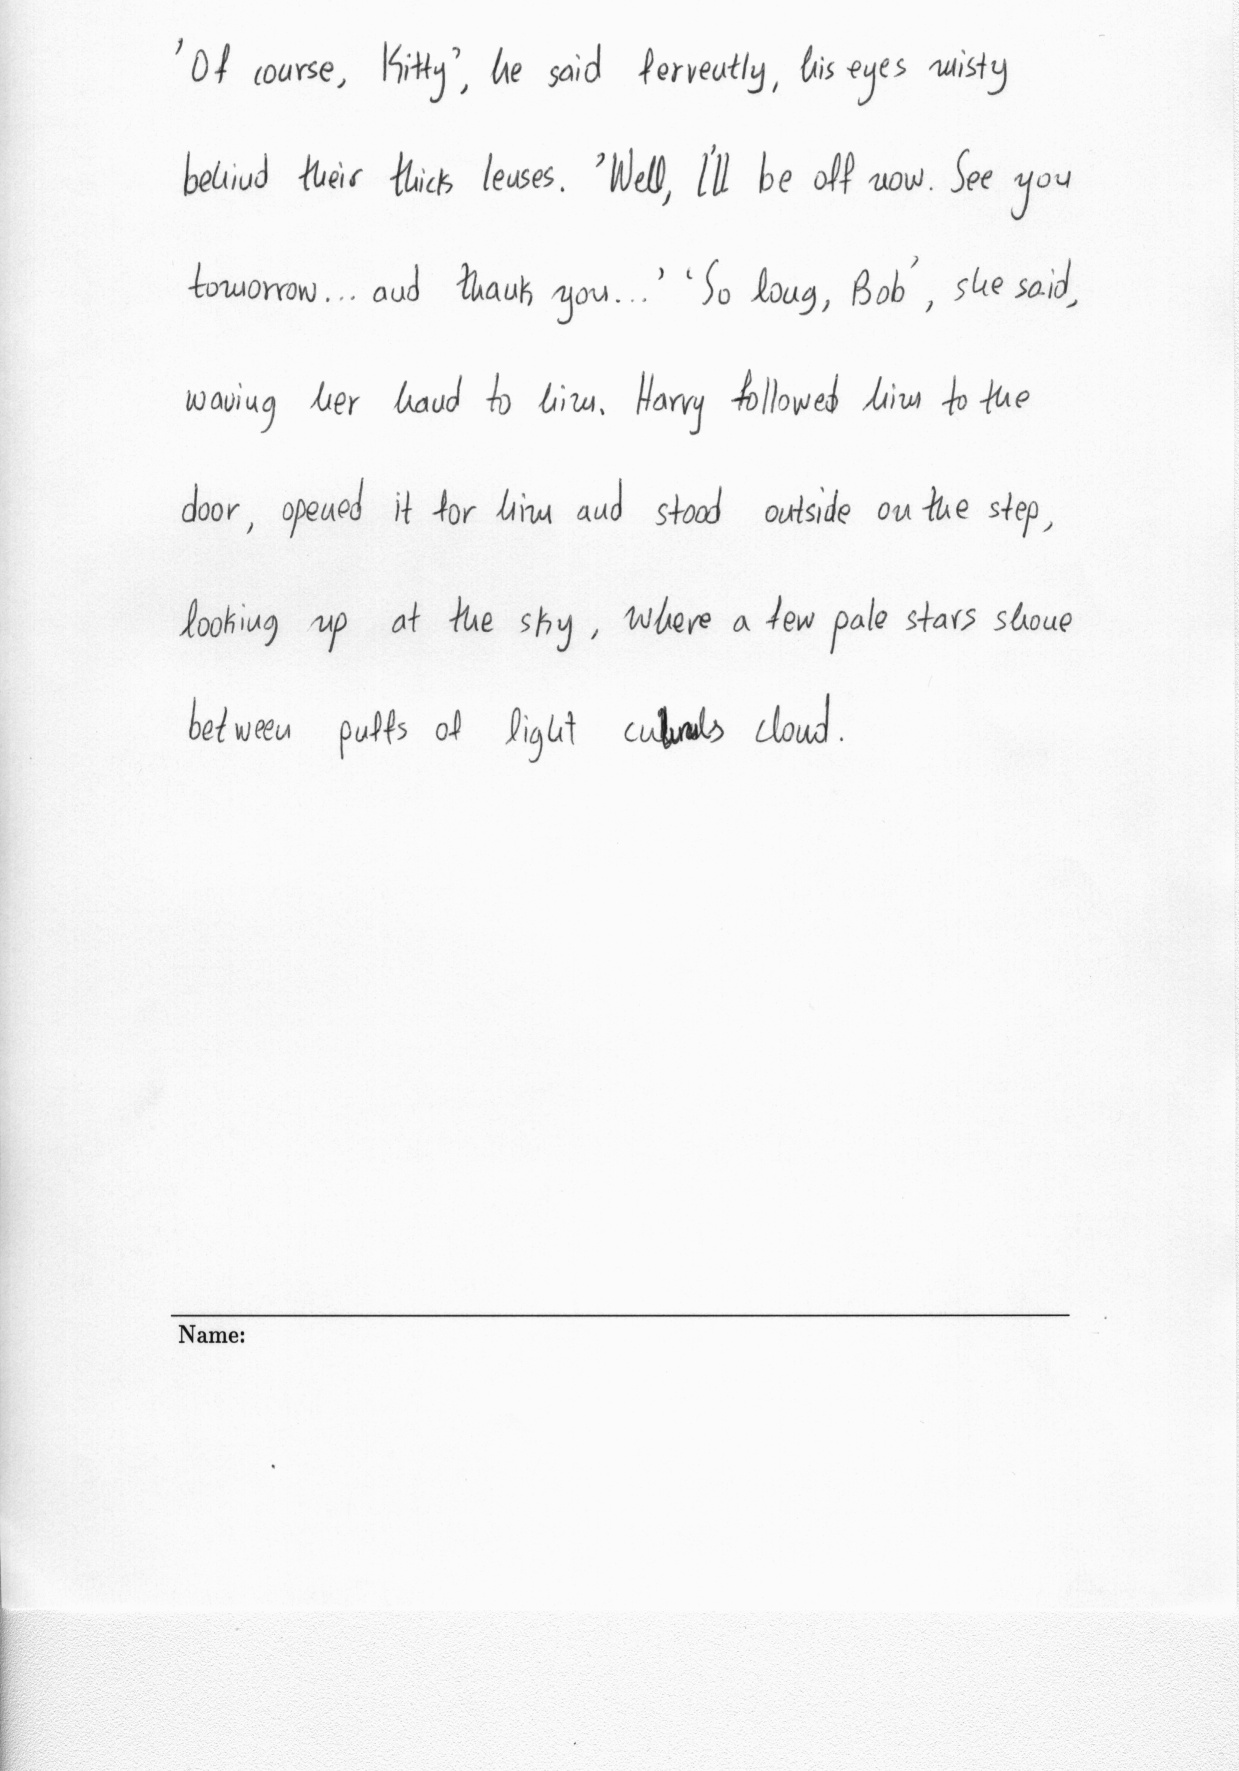 'Of course, Kitty', he said fervently, his eyes misty
behind their thick lenses. 'Well, I'll be off now. See you
tomorrow... and thank you...' 'So long, Bob', she said,
waving her hand to him. Harry followed him to the
door, opened it for him and stood outside on the step,
looking up at the sky, where a few pale stars shone
between puffs of light cloud.
Name: